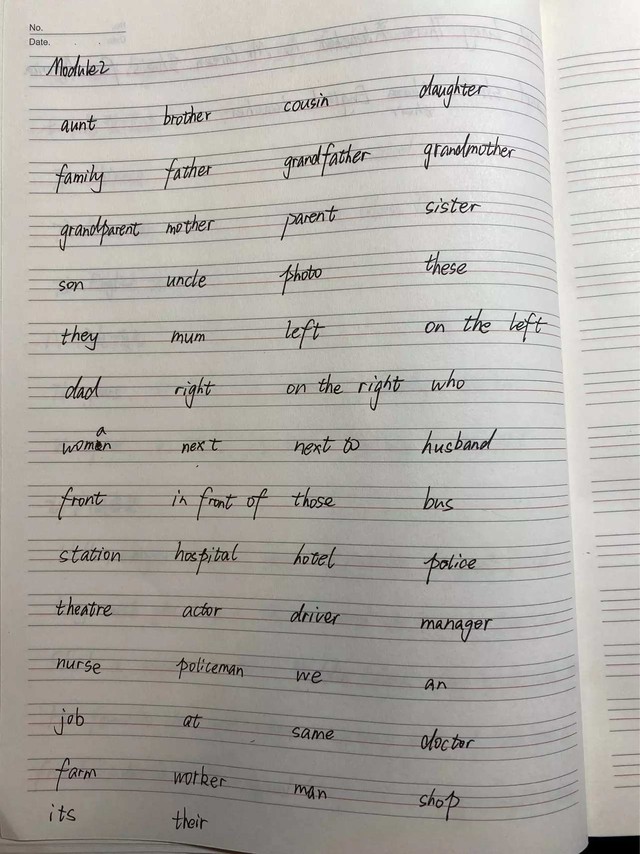 No.
Date.
Module 2
aunt brother cousin daughter
family father grandfather grandmother
grandparent mother parent sister
son uncle photo these
they mum left on the left
dad right on the right who
woman next next to husband
front in front of those bus
station hospital hotel police
theatre actor driver manager
nurse policeman we an
job at same doctor
farm worker man shop
its their